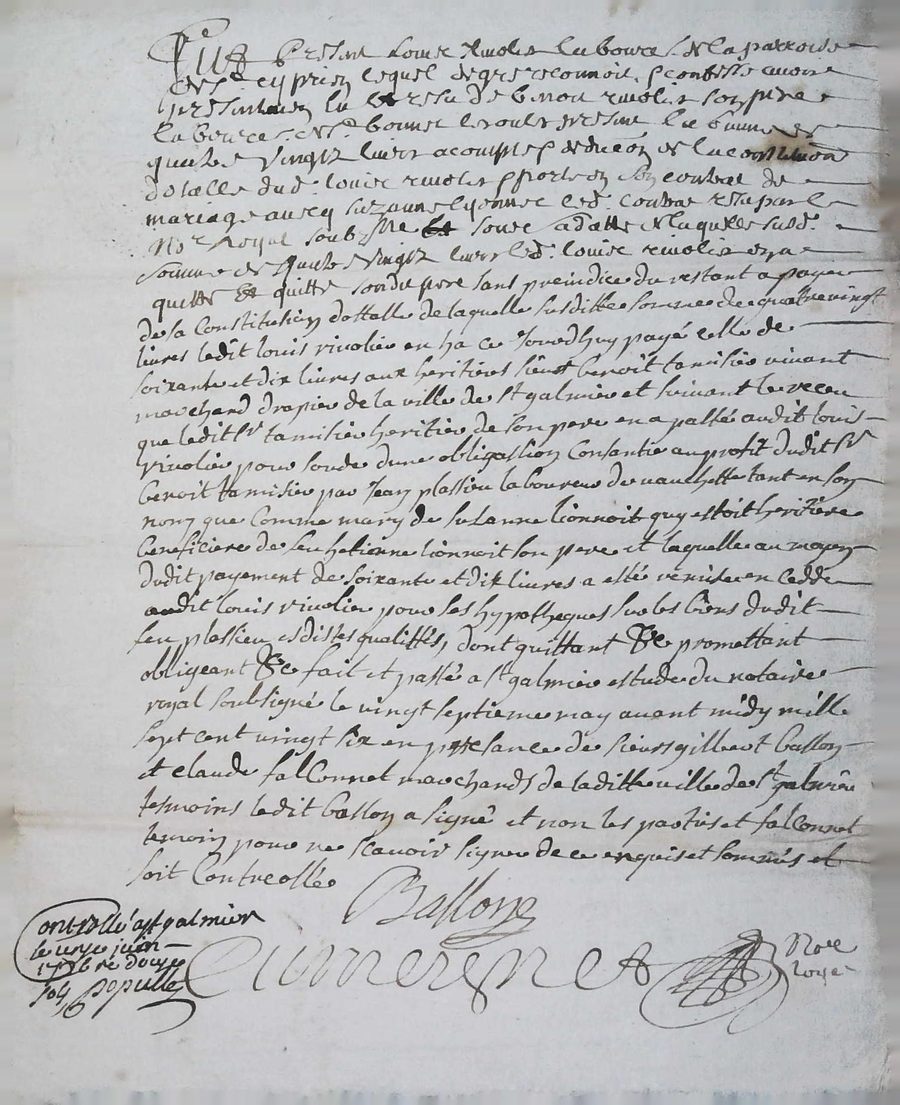 Fut present Louis rivolier laboureur de la parroisse
de St cyprien lequel de gre reconnoit & confesse avoir
presentement eu et resu de benoit rivolier son pere
laboureur de St bonnet present la somme de
quatre vingtz livres acompte & deduction de la constitution
dotalle dud: louis rivolier portee en son contrat de
mariage avecq suzanne lyonnet led: contrat resu par le
Nore Royal soubsigné sous sa datte de laquelle susd:
somme de quatre vingtz livres led: louis rivolier en a
quitté et quitte sondit pere sans preiudice du restant a payer
de sa Constitution dottalle de laquelle susditte somme de quatre vingt
livres ledit louis rivolier en ha ce Jourdhuy payé celle de
soixante et dix livres aux heritiers sieur benoit tamisier vivant
marchand drapier de la ville de St galmier et suivant le receu
que ledit Sr tamisier heritier de son pere en a passé audit louis
rivolier pour soude dune obligassion Consantie au profit dudit Sr
benoit tamisier par Jean plassieu laboureur de vauchette tant en son
nom que Comme mary de suzanne lionnoit quy estoit heritiere
beneficiere de feu hetienne lionnoit son pere et laquelle au moyen
dudit payement de soixante et dix livres a esté remise en cedde
audit louis rivolier pour ses hypotheques sur les biens dudit
feu plessieu esdistes qualittés, dont quittant &c promettant
obligeant &c fait et passé a St galmier estude du notaire
royal soubsigné le vingt septieme may avant midy mille
sept cent vingt six en presance de sieurs gilbert ballon
et claude falconnet marchands de laditte ville de St galmier
tesmoins ledit ballon a signé et non les partiës et falconnet
temoin pour ne scavoir signer de ce enquis et sommés et
soit Controllée
Ballon
Controllé a St galmier
le juin
1726 re douze
sols
Nore
Royal